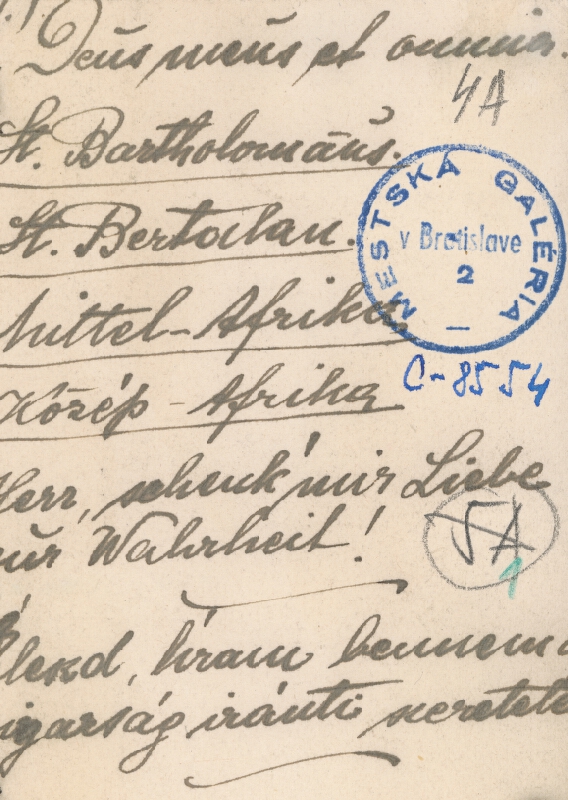 Deus meus et omnia.
4A
St. Bartholomäus.
MESTSKÁ GALÉRIA
v Bratislave
2
St. Bertalan.
Mittel-Afrika
C-8554
Közép-Afrika
Herr, schenk' mir Liebe
zur Wahrheit!
5A
1
lekd, Uram bennem a
igazság iránti szeretete